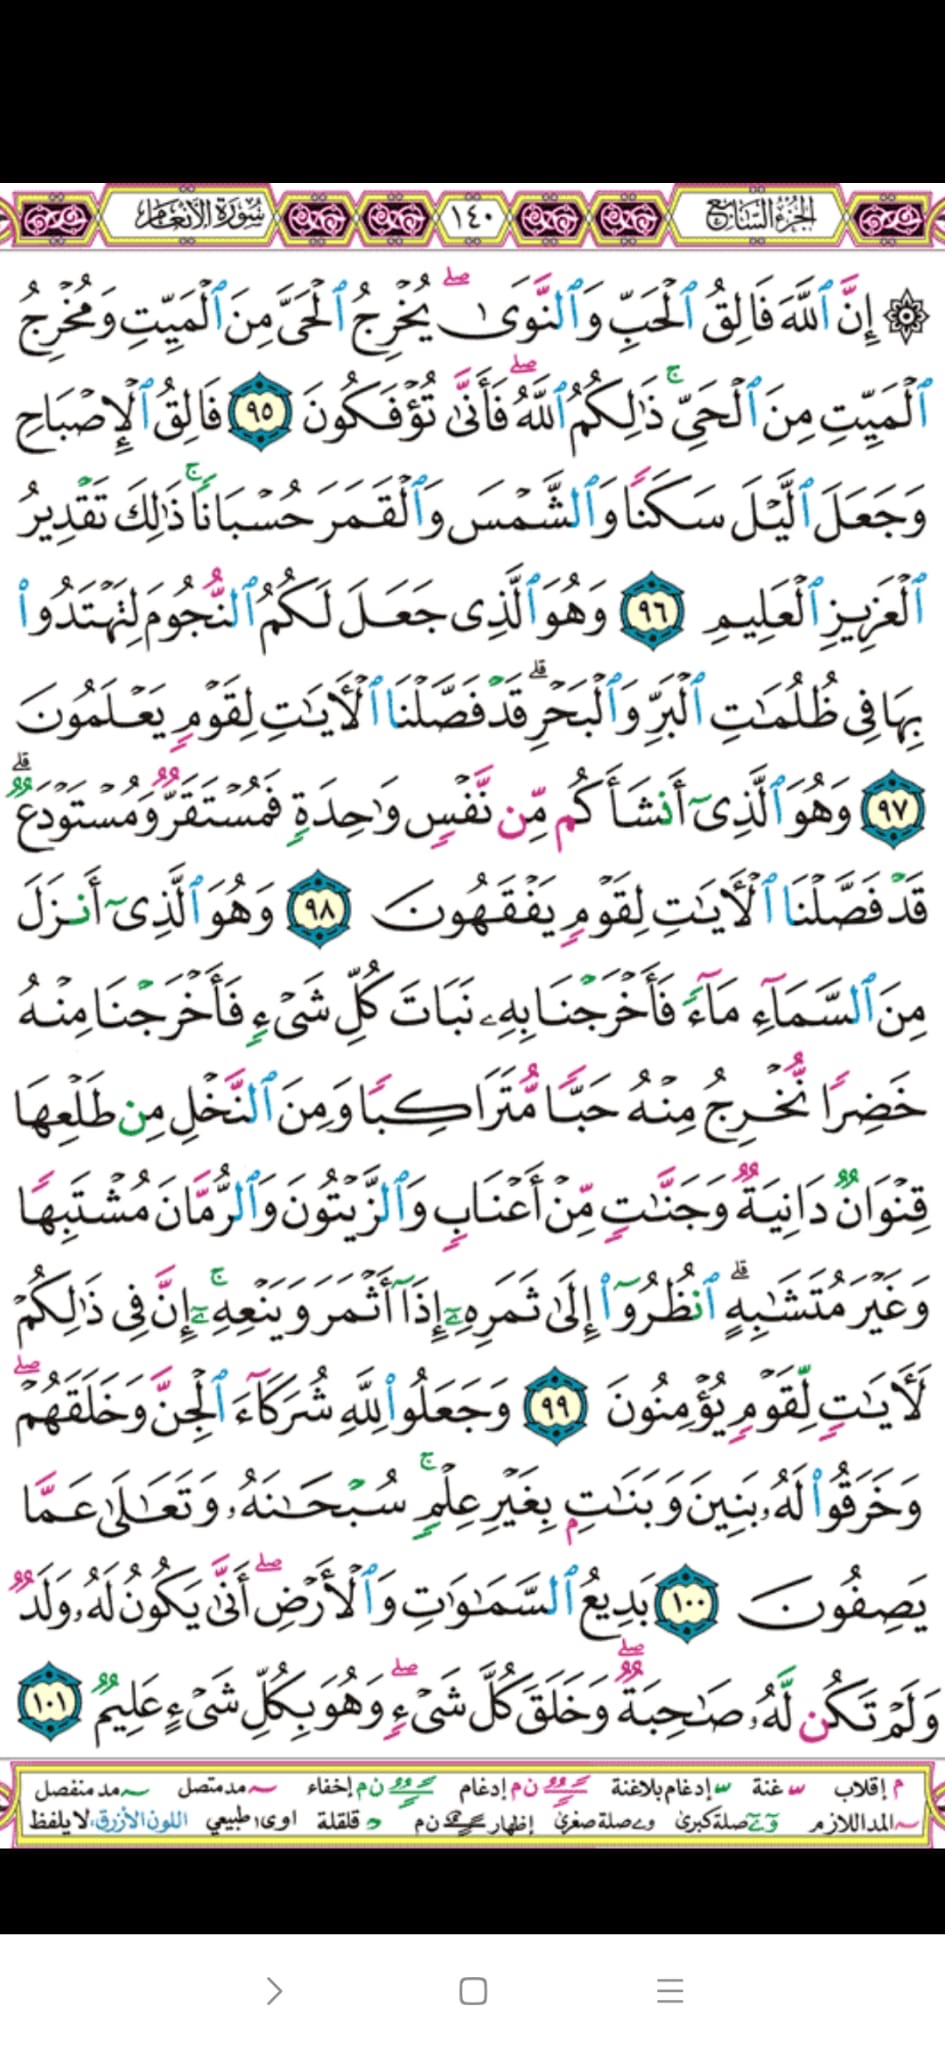 الجزء السابع
١٤٠
سورة الأنعام
۞ إِنَّ ٱللَّهَ فَالِقُ ٱلْحَبِّ وَٱلنَّوَىٰ ۖ يُخْرِجُ ٱلْحَيَّ مِنَ ٱلْمَيِّتِ وَمُخْرِجُ
ٱلْمَيِّتِ مِنَ ٱلْحَيِّ ۚ ذَٰلِكُمُ ٱللَّهُ ۖ فَأَنَّىٰ تُؤْفَكُونَ ٩٥ فَالِقُ ٱلْإِصْبَاحِ
وَجَعَلَ ٱلَّيْلَ سَكَنًا وَٱلشَّمْسَ وَٱلْقَمَرَ حُسْبَانًا ۚ ذَٰلِكَ تَقْدِيرُ
ٱلْعَزِيزِ ٱلْعَلِيمِ ٩٦ وَهُوَ ٱلَّذِى جَعَلَ لَكُمُ ٱلنُّجُومَ لِتَهْتَدُوا۟
بِهَا فِى ظُلُمَٰتِ ٱلْبَرِّ وَٱلْبَحْرِ ۗ قَدْ فَصَّلْنَا ٱلْأَيَٰتِ لِقَوْمٍ يَعْلَمُونَ
٩٧ وَهُوَ ٱلَّذِىٓ أَنشَأَكُم مِّن نَّفْسٍ وَٰحِدَةٍ فَمُسْتَقَرٌّ وَمُسْتَوْدَعٌ ۗ
قَدْ فَصَّلْنَا ٱلْأَيَٰتِ لِقَوْمٍ يَفْقَهُونَ ٩٨ وَهُوَ ٱلَّذِىٓ أَنزَلَ
مِنَ ٱلسَّمَآءِ مَآءً فَأَخْرَجْنَا بِهِۦ نَبَاتَ كُلِّ شَىْءٍ فَأَخْرَجْنَا مِنْهُ
خَضِرًا نُّخْرِجُ مِنْهُ حَبًّا مُّتَرَاكِبًا وَمِنَ ٱلنَّخْلِ مِن طَلْعِهَا
قِنْوَانٌ دَانِيَةٌ وَجَنَّٰتٍ مِّنْ أَعْنَابٍ وَٱلزَّيْتُونَ وَٱلرُّمَّانَ مُشْتَبِهًا
وَغَيْرَ مُتَشَٰبِهٍ ۗ ٱنظُرُوٓا۟ إِلَىٰ ثَمَرِهِۦٓ إِذَآ أَثْمَرَ وَيَنْعِهِۦٓ ۚ إِنَّ فِى ذَٰلِكُمْ
لَأَيَٰتٍ لِّقَوْمٍ يُؤْمِنُونَ ٩٩ وَجَعَلُوا۟ لِلَّهِ شُرَكَآءَ ٱلْجِنَّ وَخَلَقَهُمْ ۖ
وَخَرَقُوا۟ لَهُۥ بَنِينَ وَبَنَٰتٍۭ بِغَيْرِ عِلْمٍ ۚ سُبْحَٰنَهُۥ وَتَعَٰلَىٰ عَمَّا
يَصِفُونَ ١٠٠ بَدِيعُ ٱلسَّمَٰوَٰتِ وَٱلْأَرْضِ ۖ أَنَّىٰ يَكُونُ لَهُۥ وَلَدٌ
وَلَمْ تَكُن لَّهُۥ صَٰحِبَةٌ ۖ وَخَلَقَ كُلَّ شَىْءٍ ۖ وَهُوَ بِكُلِّ شَىْءٍ عَلِيمٌ ١٠١
م إقلاب غنة إدغام بلاغنة ن م إدغام ن م إخفاء مد متصل مد منفصل
المد اللازم صلة كبرى صلة صغرى إظهار ن م قلقلة اوى طبيعي اللون الأزرق، لا يلفظ